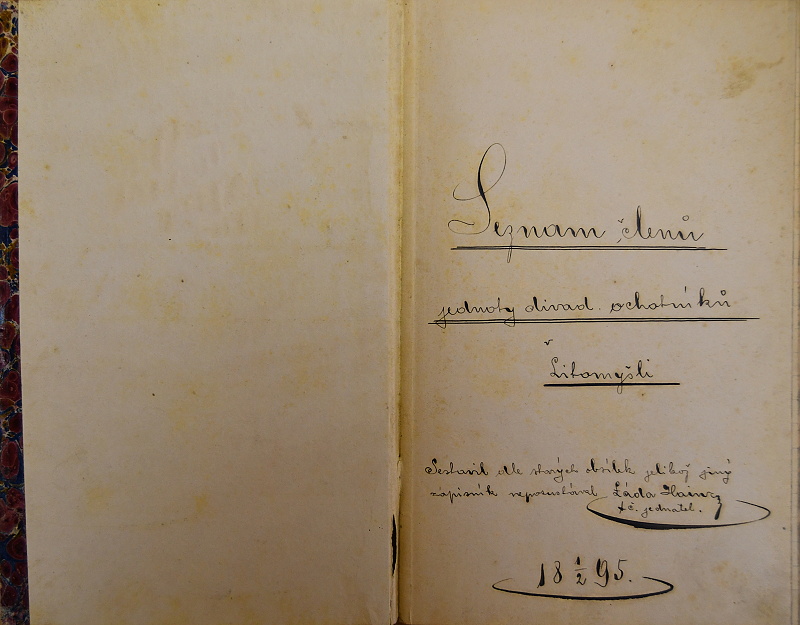 Seznam členů
jednoty divad. ochotníků
v
Litomyšli
Sestavil dle starých obsílek jelikož jiný
zápisník nepozůstával Láda Hainz
t.č. jednatel.
18 1/2 95.